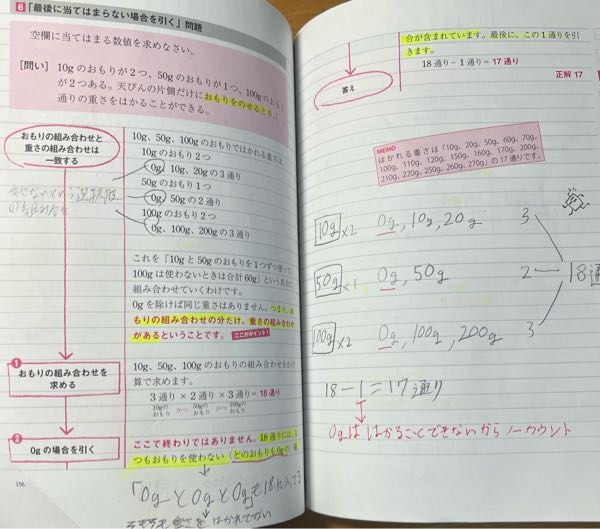 6 「最後に当てはまらない場合を引く」問題
空欄に当てはまる数値を求めなさい。
[問い] 10gのおもりが2つ、50gのおもりが1つ、100gのおもり
が2つある。天びんの片側だけにおもりをのせるとき、
通りの重さをはかることができる。
おもりの組み合わせと
重さの組み合わせは
一致する
10g、50g、100gのおもりではかれる重さは、
10gのおもり2つ
0g、10g、20gの3通り
50gのおもり1つ
0g、50gの2通り
100gのおもり2つ
0g、100g、200gの3通り
のせないという選択肢
これを「10gと50gのおもりを1つずつ使って、
100gは使わないときは合計60g」という具合に
組み合わせていくわけです。
0gを除けば同じ重さはありません。つまり、お
もりの組み合わせの分だけ、重さの組み合わせ
があるということです。 ここがポイント!
1
おもりの組み合わせを
求める
10g、50g、100gのおもりの組み合わせをかけ
算で求めます。
3通り×2通り×3通り=18通り
10gの かつ 50gの かつ 100gの
おもり おもり おもり
2
0gの場合を引く
ここで終わりではありません。18通りには、1
つもおもりを使わない(どのおもりも0gの)場
156
「0gと0gと0g」も18に入ってる
そもそも重さをはかれてない
合が含まれています。最後に、この1通りを引
きます。
18通り-1通り=17通り
正解 17
答え
MEMO
はかれる重さは「10g、20g、50g、60g、70g、
100g、110g、120g、150g、160g、170g、200g、
210g、220g、250g、260g、270g」の17通りです。
10g×2 0g, 10g, 20g 3
50g×1 0g, 50g 2 18通
100g×2 0g, 100g, 200g 3
18-1=17通り
0gははかることできないからノーカウント